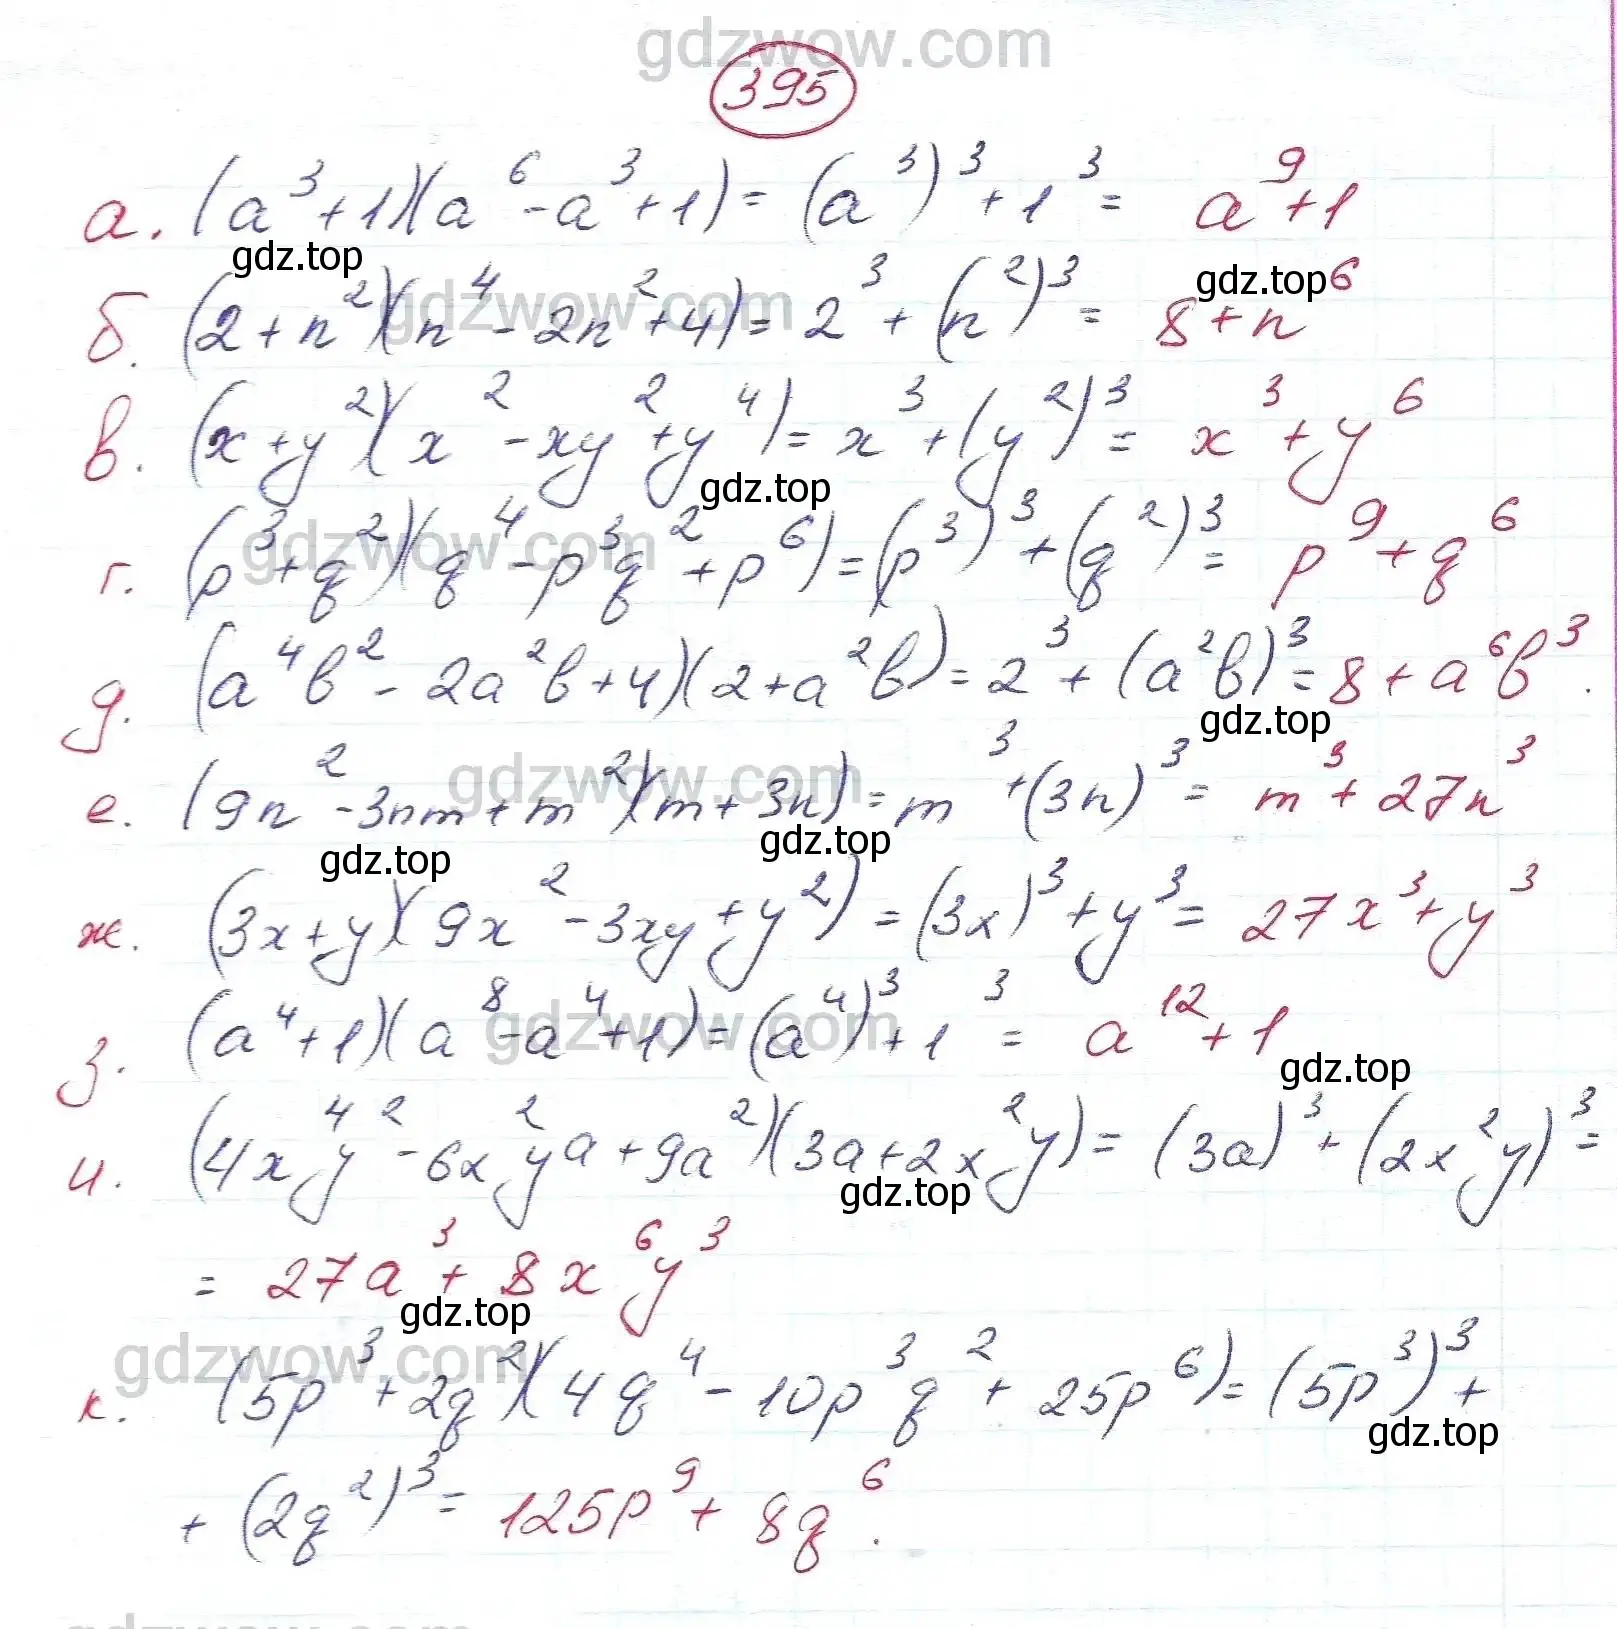 gdzwow.com
395
а. (a³+1)(a⁶-a³+1)= (a³)³+1³= a⁹+1
gdz.top
б. (2+n²)(n⁴-2n²+4)= 2³+(n²)³= 8+n⁶
gdzwow.com gdz.top
в. (x+y²)(x²-xy²+y⁴)= x³+(y²)³= x³+y⁶
gdz.top
г. (p³+q²)(q⁴-p³q²+p⁶)=(p³)³+(q²)³= p⁹+q⁶
gdzwow.com
д. (a⁴b²-2a²b+4)(2+a²b)=2³+(a²b)³=8+a⁶b³.
gdz.top
е. (9n²-3nm+m²)(m+3n)=m³+(3n)³= m³+27n³
gdzwow.com
gdz.top gdz.top
ж. (3x+y)(9x²-3xy+y²)=(3x)³+y³= 27x³+y³
з. (a⁴+1)(a⁸-a⁴+1)=(a⁴)³+1³= a¹²+1
gdzwow.com gdz.top
и. (4x⁴y²-6x²ya+9a²)(3a+2x²y)= (3a)³+(2x²y)³=
gdz.top
= 27a³+8x⁶y³
gdz.top
gdzwow.com
к. (5p³+2q²)(4q⁴-10p³q²+25p⁶)=(5p³)³+
gdz.top
+(2q²)³= 125p⁹+8q⁶.
gdzwow.com